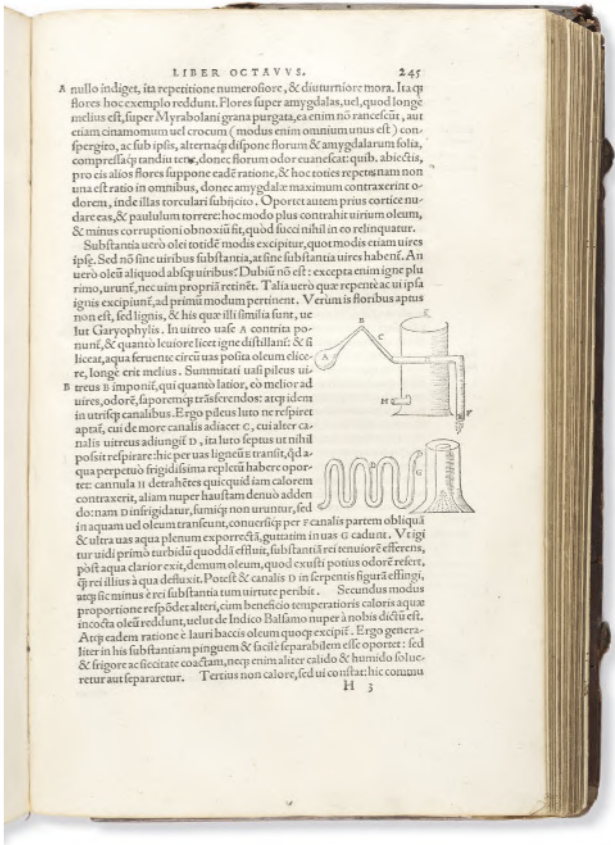 LIBER OCTAVVS. 245
A nullo indiget, ita repetitione numerosiore, & diuturniore mora. Itaqꝫ
flores hoc exemplo reddunt. Flores super amygdalas, uel, quod longè
melius est, super Myrabolani grana purgata, ea enim nõ rancescũt, aut
etiam cinamomum uel crocum (modus enim omnium unus est) con-
spergito, ac sub ipsis, alternaqꝫ dispone florum & amygdalarum folia,
compressaqꝫ tandiu tene, donec florum odor euanescat: quib. abiectis,
pro eis alios flores suppone eadẽ ratione, & hoc toties repete, nam non
una est ratio in omnibus, donec amygdalæ maximum contraxerint o-
dorem, inde illas torculari subijcito. Oportet autem prius cortice nu-
dare eas, & paululum torrere: hoc modo plus contrahit uirium oleum,
& minus corruptioni obnoxiũ fit, quòd succi nihil in eo relinquatur.
Substantia uerò olei totidẽ modis excipitur, quot modis etiam uires
ipsę. Sed nõ sine uiribus substantia, at sine substantia uires habent. An
uerò oleũ aliquod absqꝫ uiribus? Dubiũ nõ est: excepta enim igne plu
rimo, urunt̃, nec uim propriã retinẽt. Talia uerò quæ repentè ac ui ipsa
ignis excipiunt̃, ad primũ modum pertinent. Verùm is floribus aptus
non est, sed lignis, & his quæ illi similia sunt, ue
lut Garyophylis. In uitreo uase A contrita po-
nunt̃, & quanto leuiore licet igne distillant̃: & si
liceat, aqua feruente circũ uas posita oleum elice-
re, longè erit melius. Summitati uasi pileus ui-
B treus B imponit̃, qui quantò latior, eò melior ad
uires, odorẽ, saporemqꝫ trãsferendos: atqꝫ idem
in utrisqꝫ canalibus. Ergo pileus luto ne respiret
aptat̃, cui de more canalis adiacet C, cui alter ca-
nalis uitreus adiungit̃ D, ita luto septus ut nihil
possit respirare: hic per uas ligneũ E transit, qđ a-
qua perpetuò frigidissima repletũ habere opor-
tet: cannula H detrahẽtes quicquid iam calorem
contraxerit, aliam nuper haustam denuò adden
do: nam D infrigidatur, sumiciqꝫ non uruntur, sed
in aquam uel oleum transeunt, conuersiqꝫ per F canalis partem obliquã
& ultra uas aqua plenum exporrectã, guttatim in uas G cadunt. Vt igi
tur uidi primò turbidũ quoddã effluit, substantiã rei tenuiorẽ efferens,
pòst aqua clarior exit, demum oleum, quod exusti potius odorẽ refert,
q̃ rei illius à qua defluxit. Potest & canalis D in serpentis figurã effingi,
atqꝫ sic minus è rei substantia tum uirtute peribit. Secundus modus
proportione respõdet alteri, cum beneficio temperatioris caloris aquæ
incocta oleũ reddunt, uelut de Indico Balsamo nuper à nobis dictũ est.
Atqꝫ eadem ratione è lauri baccis oleum quoqꝫ excipit̃. Ergo genera-
liter in his substantiam pinguem & facilè separabilem esse oportet: sed
& frigore ac siccitate coactam, neqꝫ enim aliter calido & humido solue-
retur aut separaretur. Tertius non calore, sed ui constat: hic commu
H 3
A
B
C
E
M
F
G